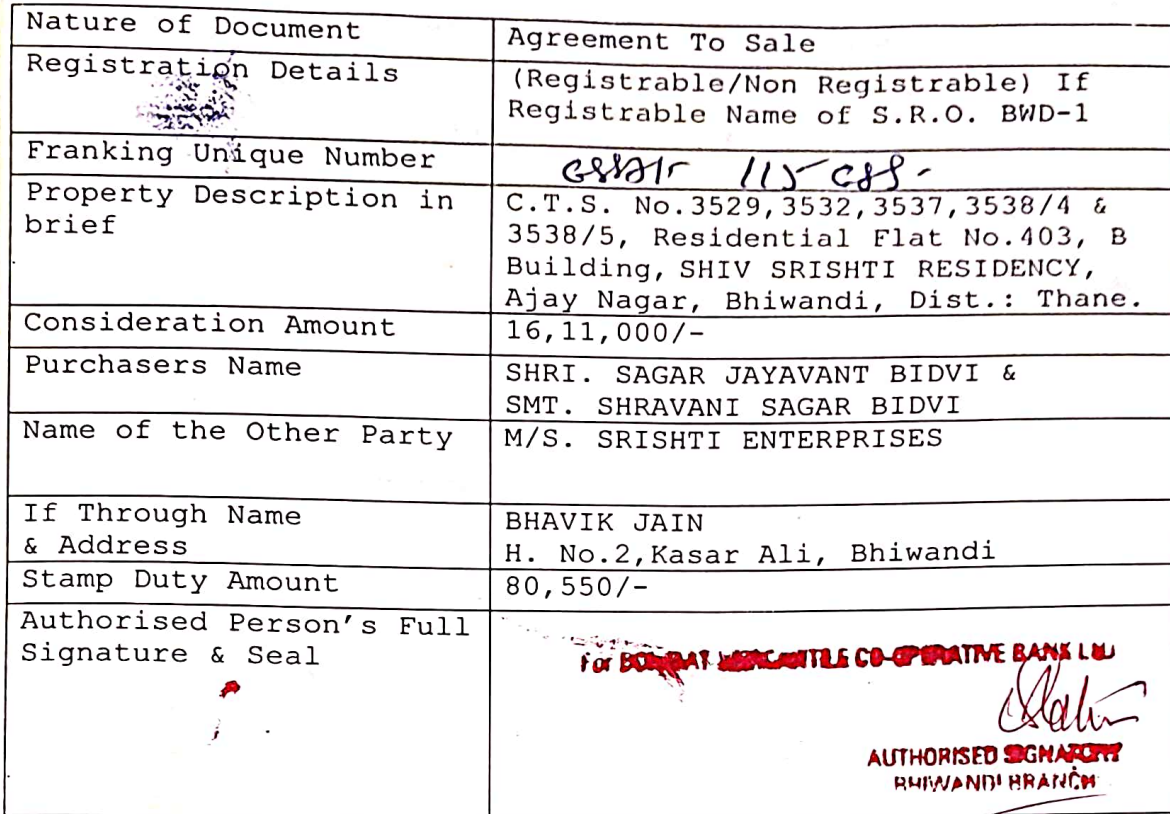 Nature of Document
Agreement To Sale
Registration Details
(Registrable/Non Registrable) If
Registrable Name of S.R.O. BWD-1
Franking Unique Number
Property Description in
brief
C.T.S. No.3529,3532,3537,3538/4 &
3538/5, Residential Flat No.403, B
Building, SHIV SRISHTI RESIDENCY,
Ajay Nagar, Bhiwandi, Dist.: Thane.
Consideration Amount
16,11,000/-
Purchasers Name
SHRI. SAGAR JAYAVANT BIDVI &
SMT. SHRAVANI SAGAR BIDVI
Name of the Other Party
M/S. SRISHTI ENTERPRISES
If Through Name
& Address
BHAVIK JAIN
H. No.2,Kasar Ali, Bhiwandi
Stamp Duty Amount
80,550/-
Authorised Person's Full
Signature & Seal
For BOMBAY MERCANTILE CO-OPERATIVE BANK LTD
AUTHORISED SIGNATORY
BHIWANDI BRANCH